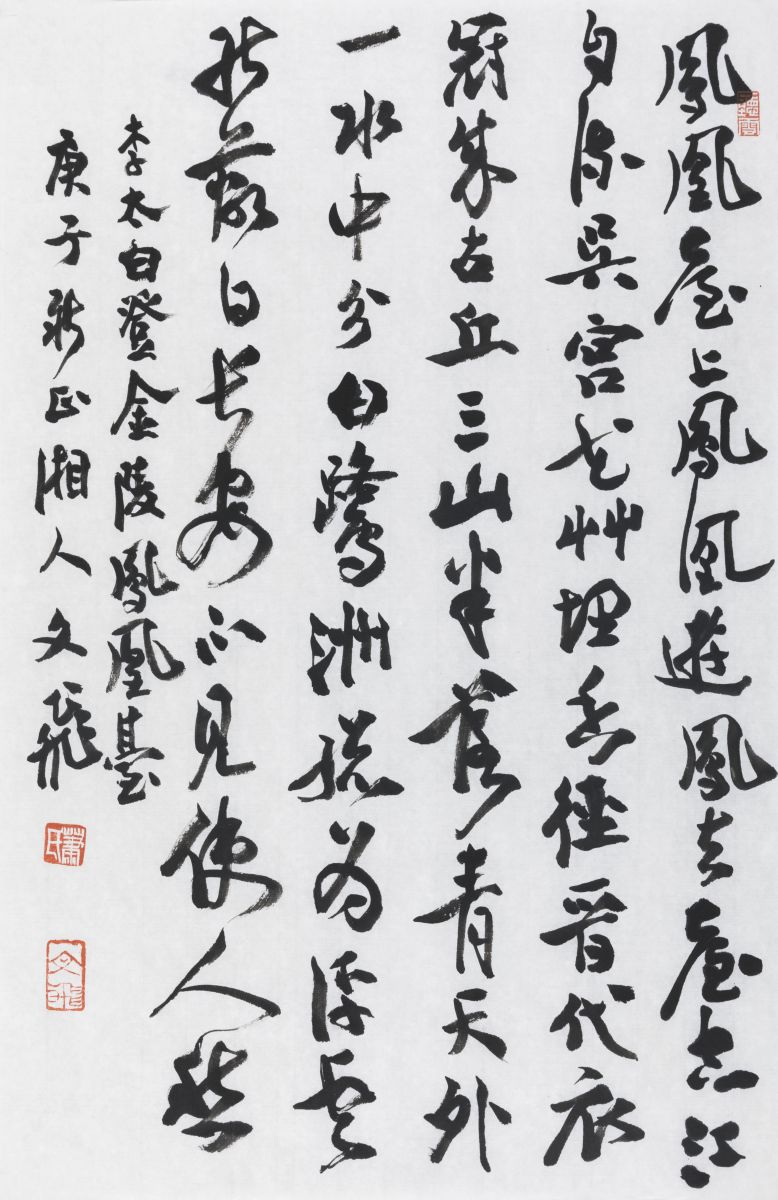 鳳凰臺上鳳凰遊鳳去臺空江
自流吳宮花艸埋幽徑晉代衣
冠成古丘三山半落青天外
一水中分白鷺洲總為浮雲
能蔽日長安不見使人愁
李太白登金陵鳳凰臺
庚子新正湘人文飛
蕭氏
文飛